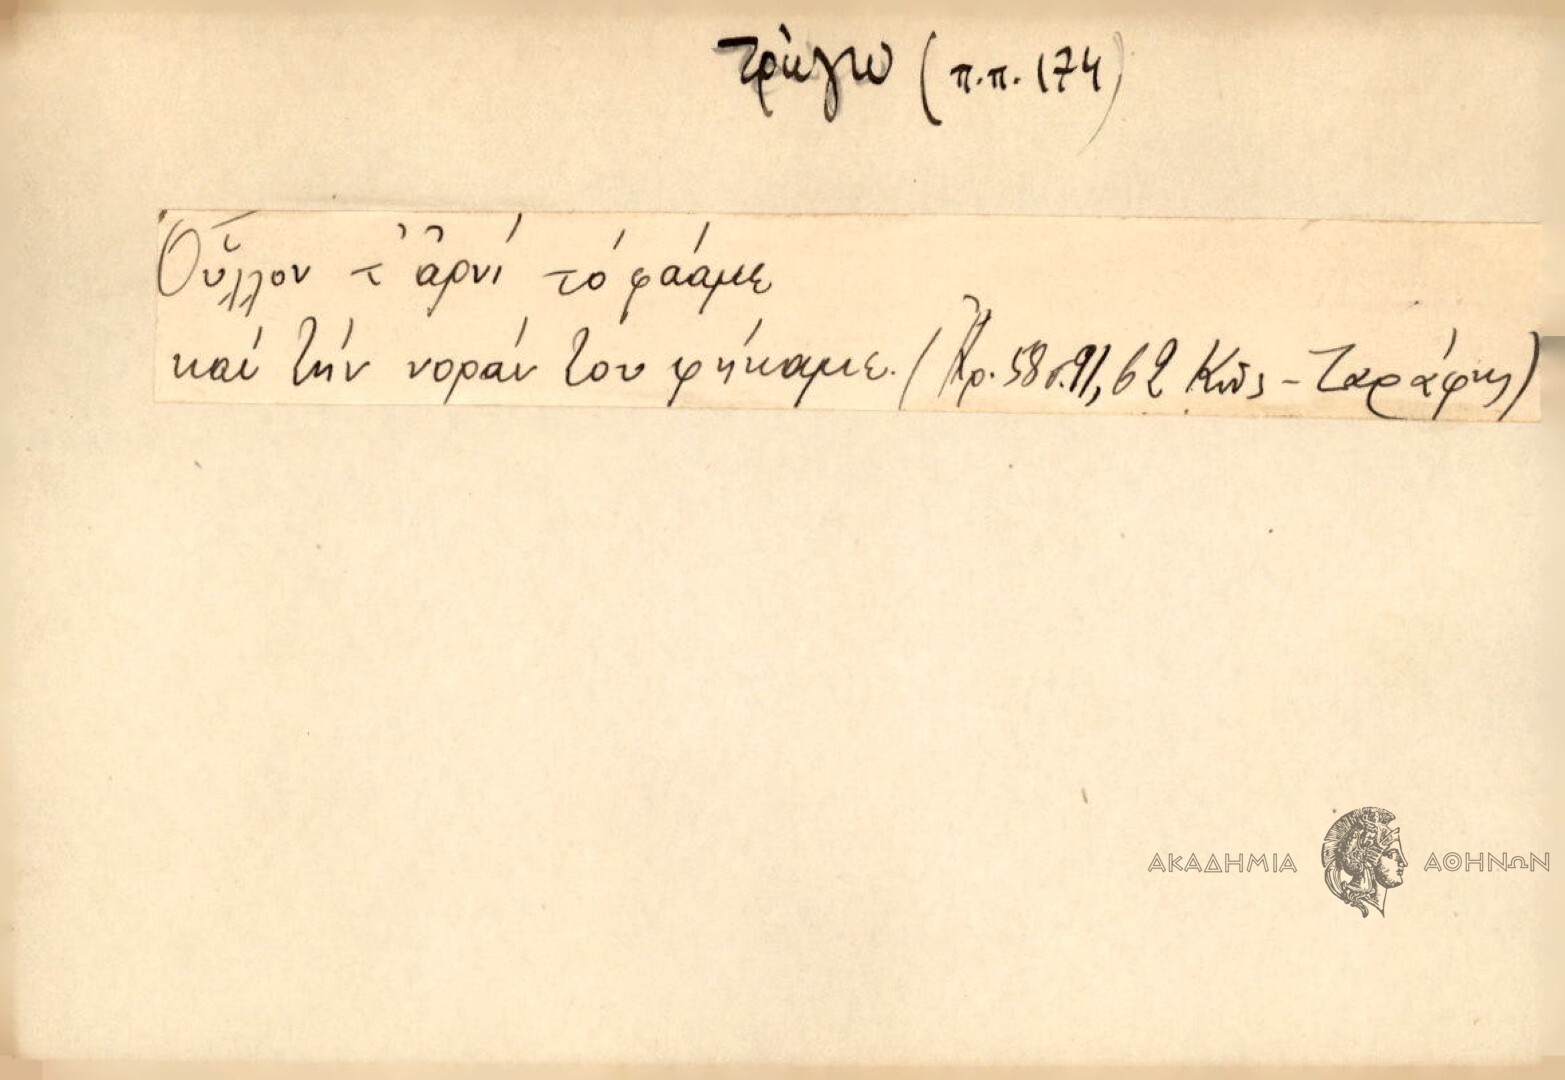 τρώγω (π.π. 174)
Οὗλλον τ' ἀρνί τό φάάμε
καί τήν νοράν του φήκαμε. (Ἀρ. 58 σ. 91, 62 Κῶς - Ζαράφτης)
ΑΚΑΔΗΜΙΑ ΑΘΗΝΩΝ